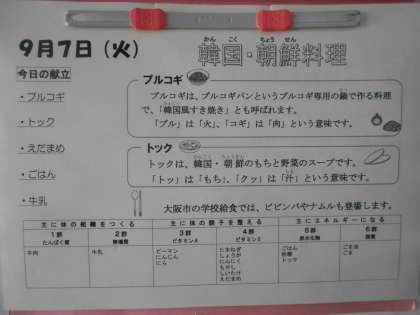 9月7日(火)
韓国・朝鮮料理
かん こく ちょう せん
今日の献立
・プルコギ
・トック
・えだまめ
・ごはん
・牛乳
プルコギ
プルコギは、プルコギパンというプルコギ専用の鍋で作る料理
で、「韓国風すき焼き」とも呼ばれます。
「プル」は「火」、「コギ」は「肉」という意味です。
トック
トックは、韓国・朝鮮のもちと野菜のスープです。
「トッ」は「もち」、「クッ」は「汁」という意味です。
大阪市の学校給食では、ビビンバやナムルも登場します。
主に体の組織をつくる 主に体の調子を整える 主にエネルギーになる
1群 2群 3群 4群 5群 6群
たんぱく質 無機質 ビタミンA ビタミンC 炭水化物 脂質
牛肉 牛乳 ピーマン たまねぎ ごはん ごま油
にんじん しょうが 砂糖 ごま
にら にんにく トック
もやし
しいたけ
えだまめ